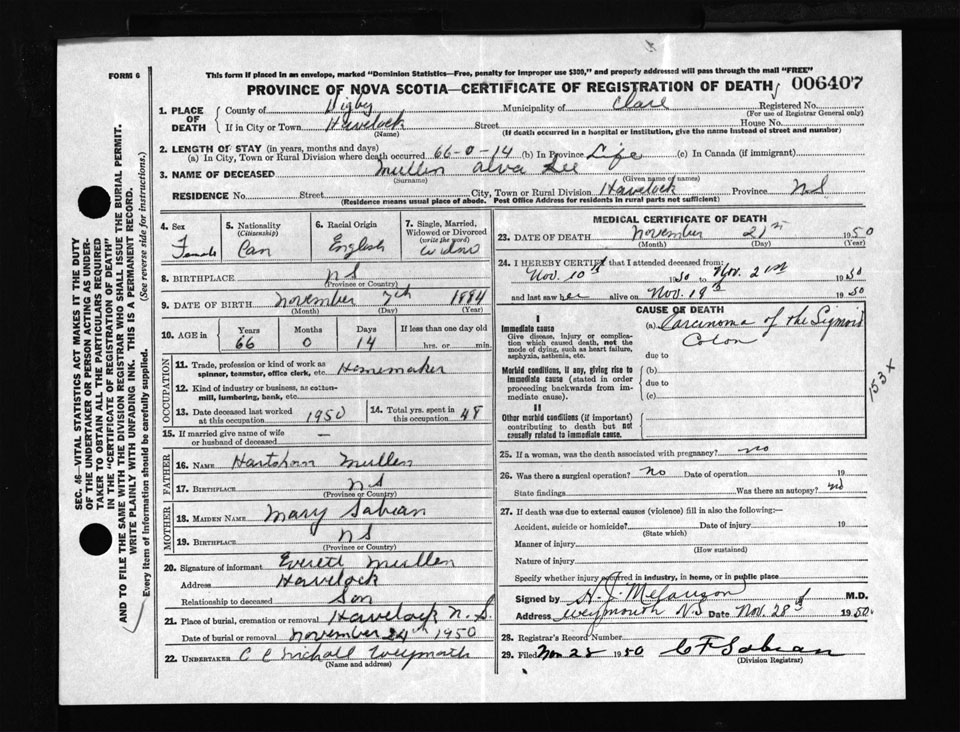 FORM 6
This form if placed in an envelope, marked "Dominion Statistics—Free, penalty for improper use $300," and properly addressed will pass through the mail "FREE"
PROVINCE OF NOVA SCOTIA—CERTIFICATE OF REGISTRATION OF DEATH 006407
1. PLACE OF DEATH
County of Digby Municipality of Clare Registered No.
(For use of Registrar General only)
If in City or Town Havelock Street House No.
(Name) (If death occurred in a hospital or institution, give the name instead of street and number)
2. LENGTH OF STAY (in years, months and days)
(a) In City, Town or Rural Division where death occurred 66-0-14 (b) In Province Life (c) In Canada (if immigrant)
3. NAME OF DECEASED Mullen Alva Lee
(Surname) (Given name or names)
RESIDENCE No. Street City, Town or Rural Division Havelock Province N S
(Residence means usual place of abode. Post Office Address for residents in rural parts not sufficient)
4. Sex Female
5. Nationality (Citizenship) Can
6. Racial Origin English
7. Single, Married, Widowed or Divorced (write the word) Widow
8. BIRTHPLACE N S
(Province or Country)
9. DATE OF BIRTH November 7th 1884
(Month) (Day) (Year)
10. AGE in Years Months Days If less than one day old
66 0 14 hrs. or min.
OCCUPATION
11. Trade, profession or kind of work as spinner, teamster, office clerk, etc. Homemaker
12. Kind of industry or business, as cotton-mill, lumbering, bank, etc.
13. Date deceased last worked at this occupation 1950
14. Total yrs. spent in this occupation 48
15. If married give name of wife or husband of deceased —
FATHER
16. NAME Hartshorn Mullen
17. BIRTHPLACE N S
(Province or Country)
MOTHER
18. MAIDEN NAME Mary Sabean
19. BIRTHPLACE N S
(Province or Country)
20. Signature of informant Everett Mullen
Address Havelock
Relationship to deceased Son
21. Place of burial, cremation or removal Havelock N.S.
Date of burial or removal November 24th 1950
22. UNDERTAKER C C Nichall Weymouth
(Name and address)
MEDICAL CERTIFICATE OF DEATH
23. DATE OF DEATH November 21st 1950
(Month) (Day) (Year)
24. I HEREBY CERTIFY that I attended deceased from:
Nov. 10th 1950 to Nov. 21st 1950
and last saw her alive on Nov. 19th 1950
CAUSE OF DEATH
I
Immediate cause
Give disease, injury or complication which caused death, not the mode of dying, such as heart failure, asphyxia, asthenia, etc.
(a) Carcinoma of the Sigmoid Colon
due to
Morbid conditions, if any, giving rise to immediate cause (stated in order proceeding backwards from immediate cause).
(b)
due to
(c)
II
Other morbid conditions (if important) contributing to death but not causally related to immediate cause.
153X
25. If a woman, was the death associated with pregnancy? no
26. Was there a surgical operation? no Date of operation 19
State findings Was there an autopsy? no
27. If death was due to external causes (violence) fill in also the following:—
Accident, suicide or homicide? Date of injury 19
(State which)
Manner of injury
(How sustained)
Nature of injury
Specify whether injury occurred in industry, in home, or in public place
Signed by M.D.
Address Weymouth N.S Date Nov. 28th 1950
28. Registrar's Record Number
29. Filed Nov 28 1950 C F Sabean
(Division Registrar)
SEC. 46—VITAL STATISTICS ACT MAKES IT THE DUTY
OF THE UNDERTAKER OR PERSON ACTING AS UNDER-
TAKER TO OBTAIN ALL THE PARTICULARS REQUIRED
IN THE "CERTIFICATE OF REGISTRATION OF DEATH"
AND TO FILE THE SAME WITH THE DIVISION REGISTRAR WHO SHALL ISSUE THE BURIAL PERMIT.
WRITE PLAINLY WITH UNFADING INK. THIS IS A PERMANENT RECORD.
Every item of Information should be carefully supplied. (See reverse side for instructions.)